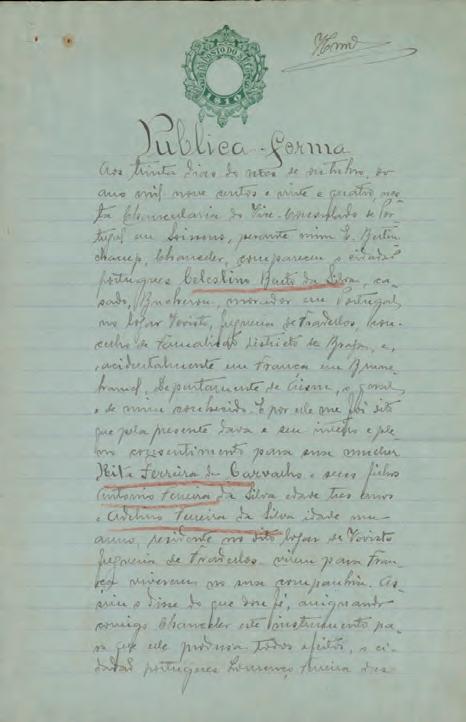 IMPOSTO DO SELO
1910
Publica-forma
Aos trinta dias do mes de outubro, do
ano mil nove centos e vinte e quatro, nes-
ta Chancelaria do Vice-Consulado de Por-
tugal em Soissons, perante mim
Chanceler, compareceu o cidadão
português Celestino da Silva, ca-
sado, morador em Portugal
no logar Vovisto, freguesia de Fradelos, con-
celho de Famalicão districto de Braga, e,
acidentalmente em França em
Departamento de Aisne, o qual
é de mim conhecido. E por ele me foi dito
que pela presente dava o seu inteiro e ple-
no consentimento para sua mulher
Rita Ferreira de Carvalho e seus filhos
Antonio da Silva idade tres anos
e Adelino da Silva idade um
anno, residente no dito logar de Vovisto
freguesia de Fradelos. virem para Fran-
ça viverem na sua companhia. As-
sim o disse do que dou fé, assignando
comigo Chanceler este instrumento pa-
ra que ele produsa todos efeitos, o ci-
dadão português Lourenço